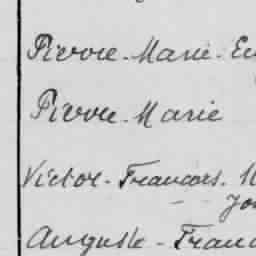 Pierre-Marie-Eu
Pierre-Marie
Victor-Francois.
Auguste-Franc